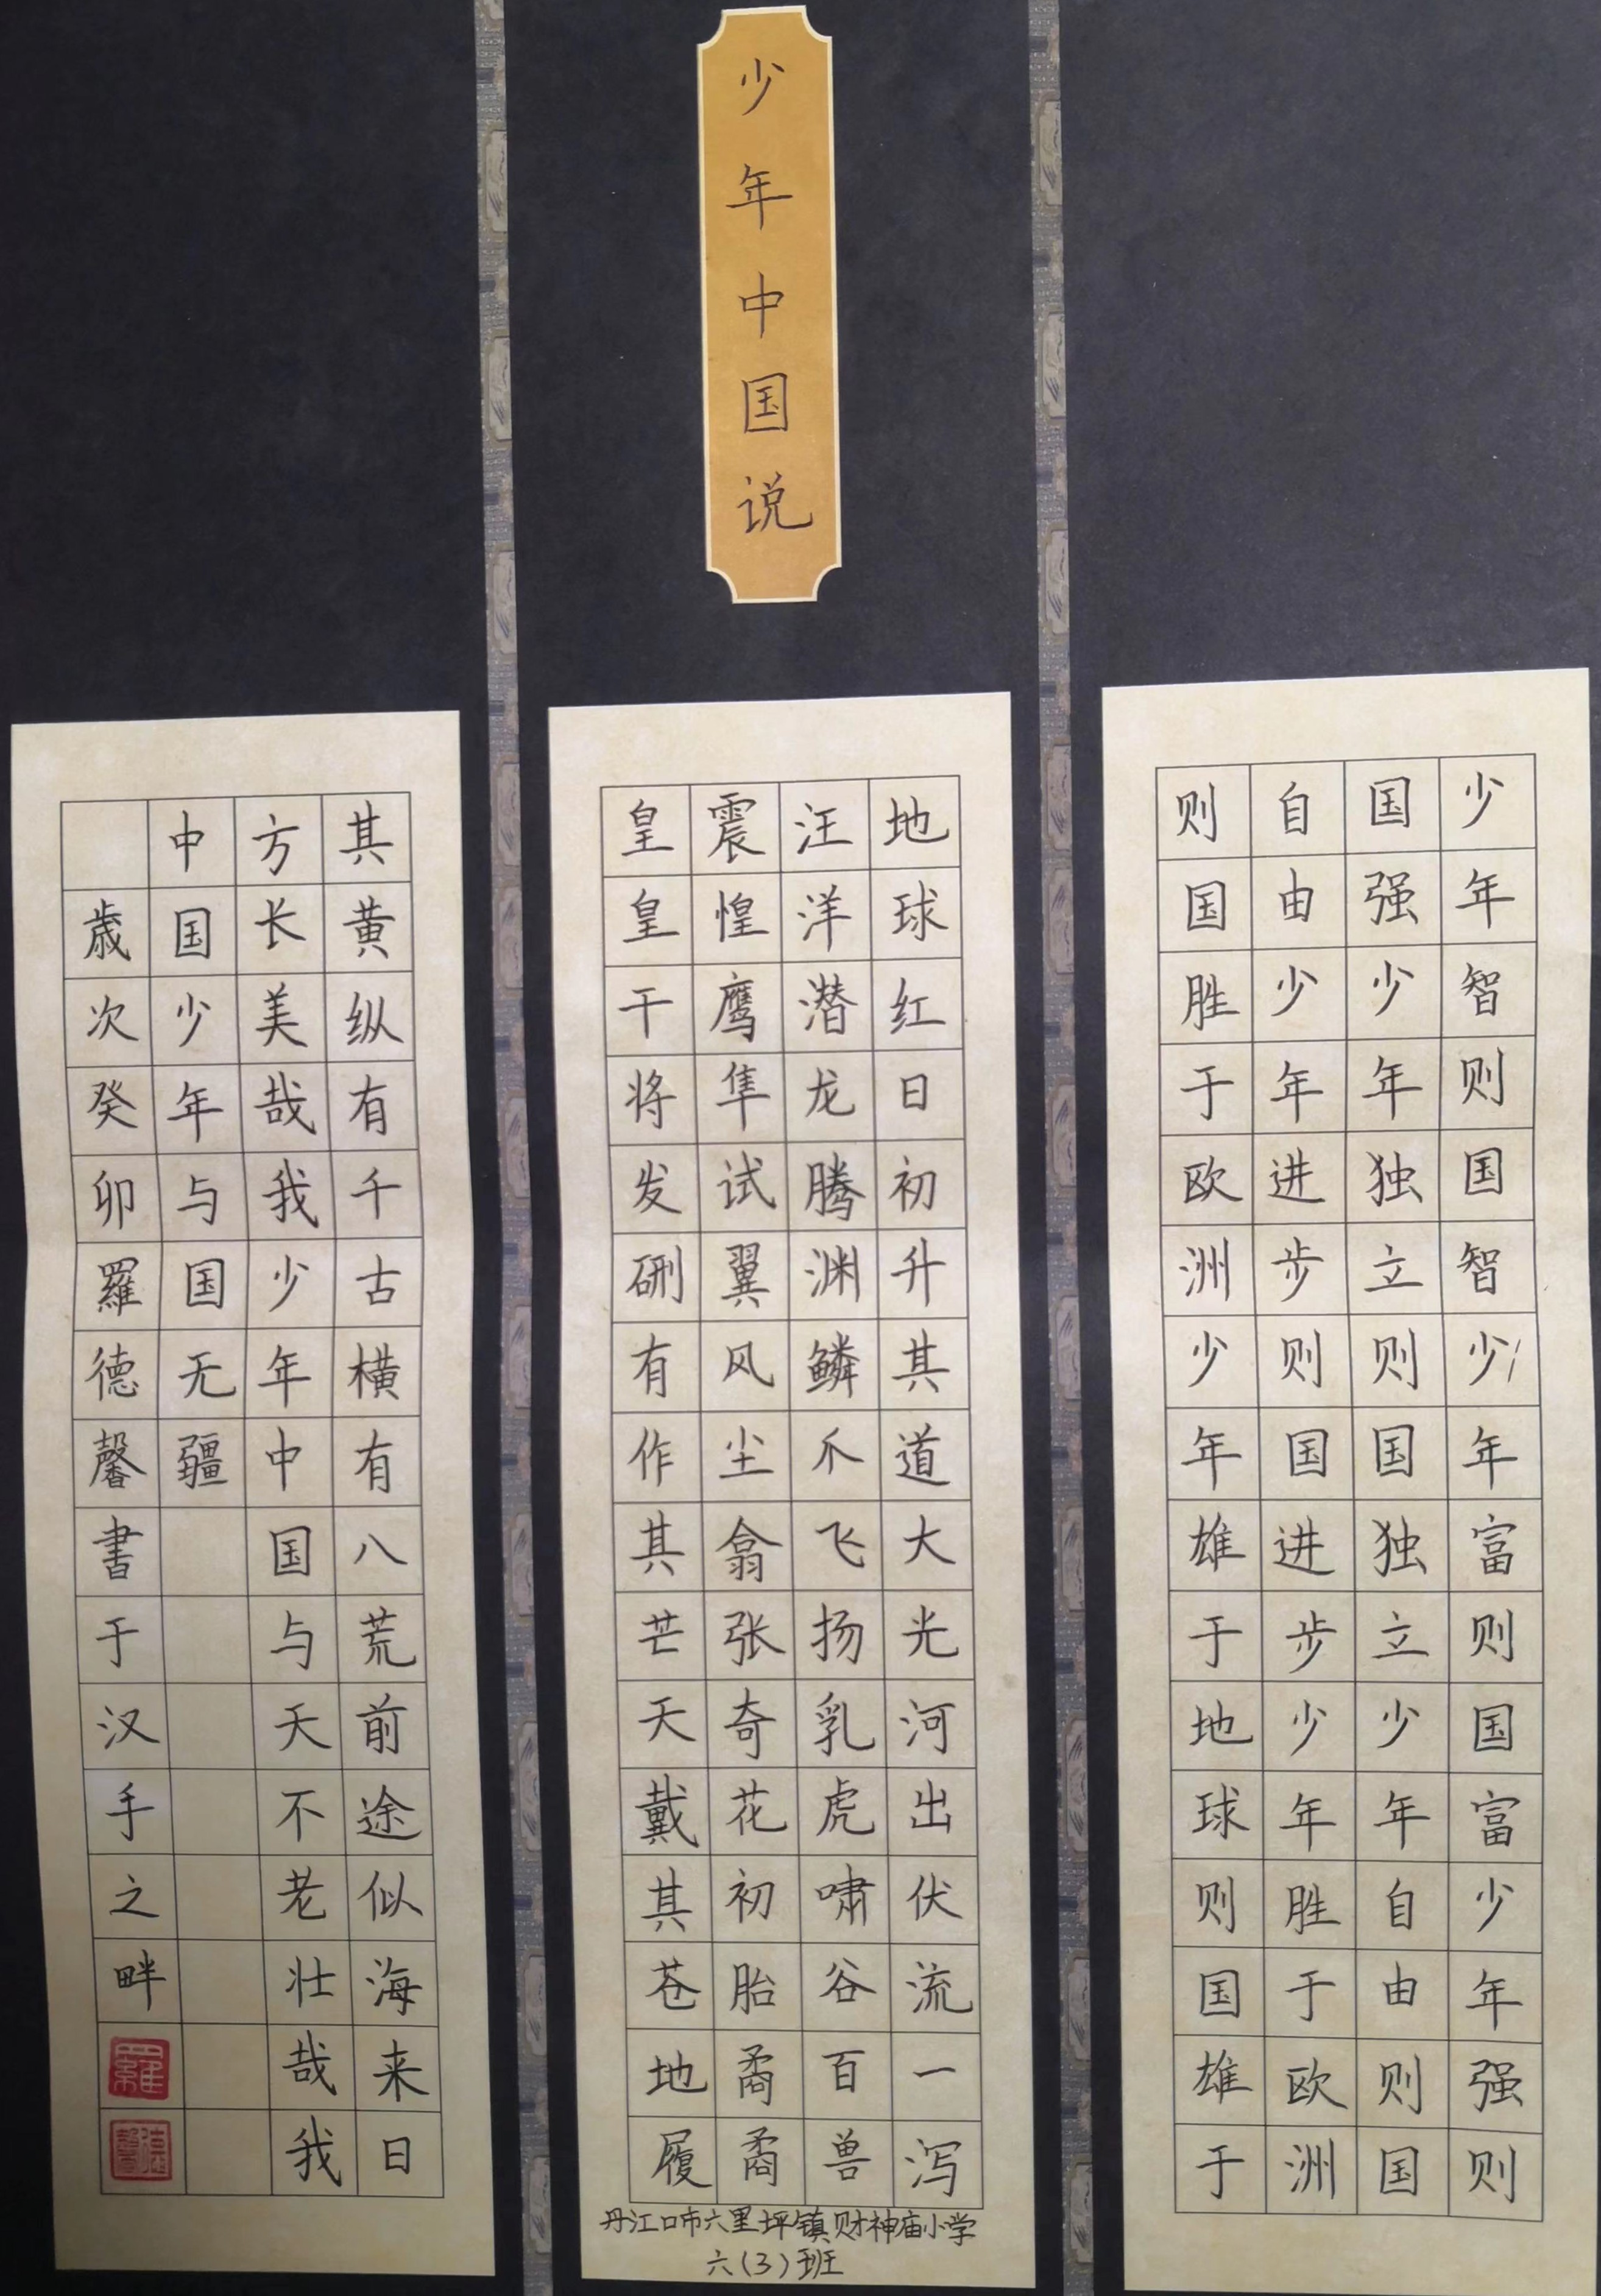 少年中国说
少年智则国智少年富则国富少年强则
国强少年独立则国独立少年自由则国
自由少年进步则国进步少年胜于欧洲
则国胜于欧洲少年雄于地球则国雄于
地球红日初升其道大光河出伏流一泻
汪洋潜龙腾渊鳞爪飞扬乳虎啸谷百兽
震惶鹰隼试翼风尘翕张奇花初胎矞矞
皇皇干将发硎有作其芒天戴其苍地履
丹江口市六里坪镇财神庙小学
六(3)班
其黄纵有千古横有八荒前途似海来日
方长美哉我少年中国与天不老壮哉我
中国少年与国无疆
歳次癸卯羅德馨書于汉手之畔
羅
德馨